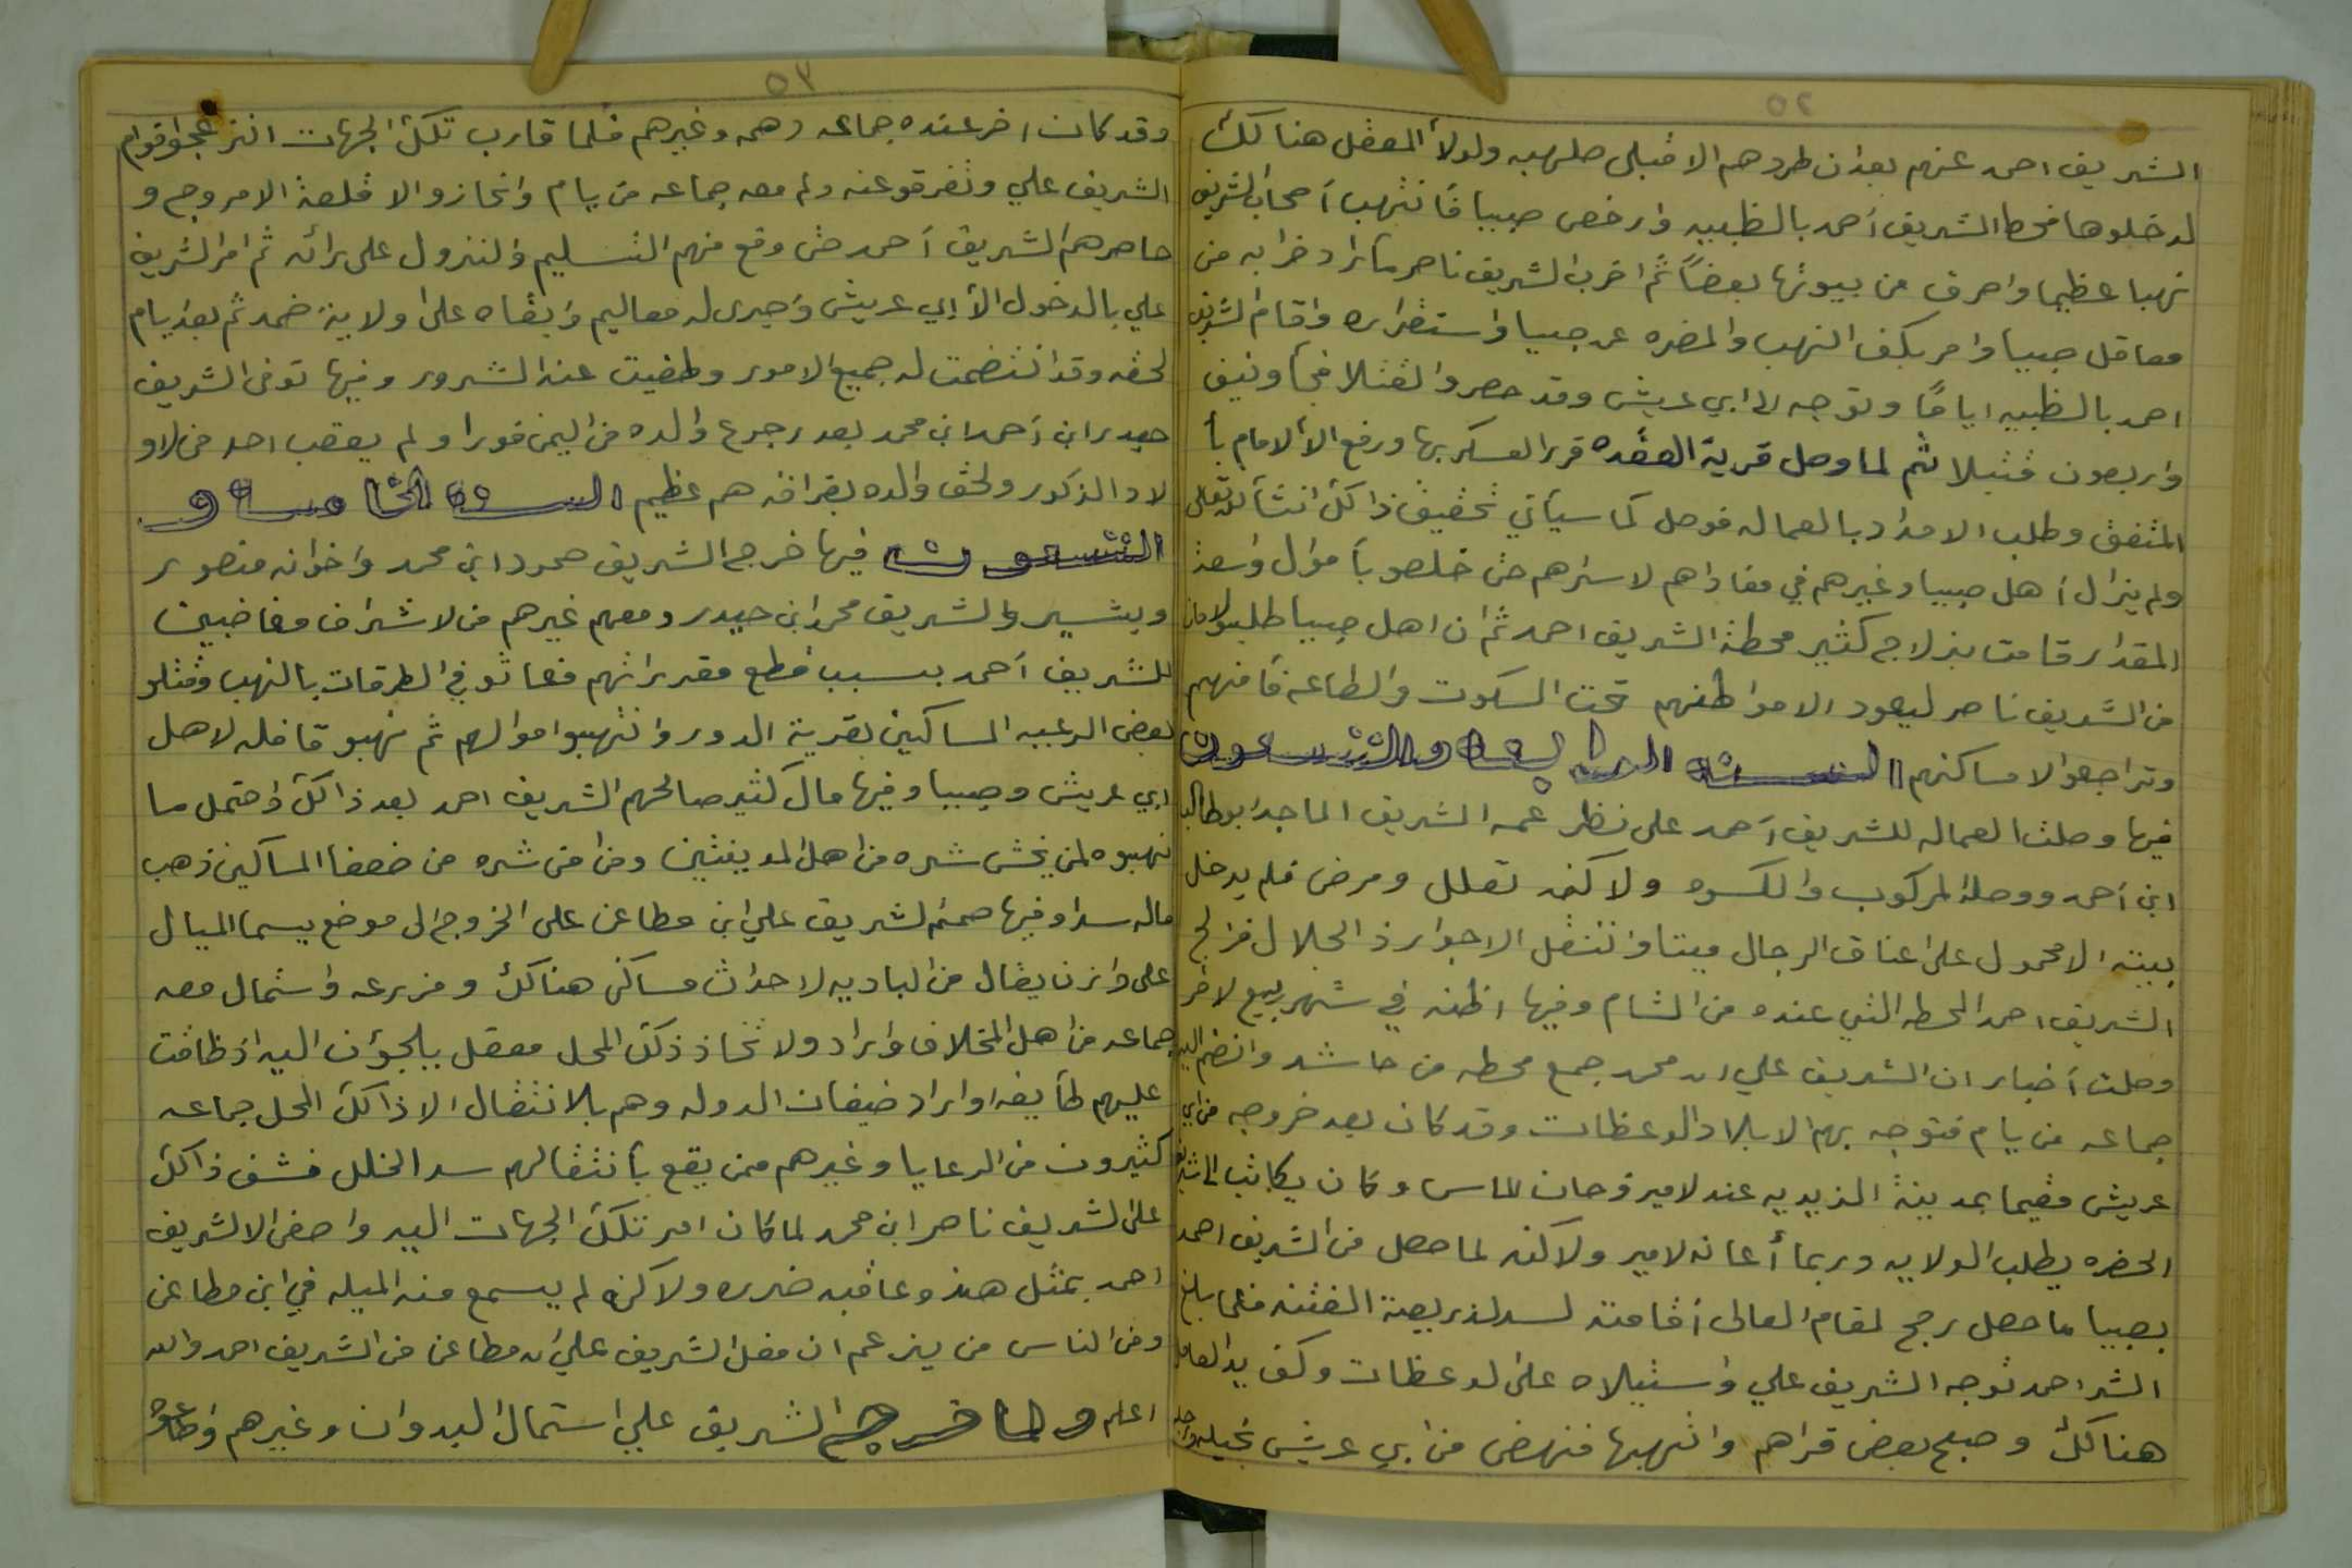 ٥٢
الشريف احمد عنهم بعد ان طردهم الا قبلي صلهبه ولولا المعقل هنا لك
لدخلوها فحط الشريف أحمد بالظبيه وارخص صبيا فأنتهب أصحاب الشريف
نهبا عظيما واحرق من بيوتها بعضاً ثم اخرب الشريف ناصر ما اراد خرابه من
معاقل صبيا وامر بكف النهب والمضره عن صبيا واستقراره واقام الشريف
احمد بالظبيه اياماً وتوجه الى ابي عريش وقد حصروا القتلا فجأ ونيف
واربعون قتيلا ثم لما وصل قرية العقده قرر العسكر بها ورفع الا الامام بأ
المتفق وطلب الامداد بالعماله فوصل كما سيأتي تحقيق ذا لك انشأ الله تعالى
ولم يزل أهل صبيا وغيرهم في مفاداهم لاسراهم حتى خلصو بأموال واسعة
المقدار قامت بزلاج كثير محطة الشريف احمد ثم ان اهل صبيا طلبوا لامان
من الشريف ناصر ليعود الا مواطنهم تحت السكوت والطاعه فأمنهم
وتراجعوا لا مساكنهم السنــة الرابعــة والتسعون
فيها وصلت العماله للشريف أحمد على نظر عمه الشريف الماجد ابو طالب
ابن أحمد ووصلة المركوب والكسوه ولا كنه تعلل ومرض فلم يدخل
بيته الا محمول على اعناق الرجال ميتا وانتقل الا جوار ذ الجلال فزلج
الشريف احمد المحطه التي عنده من الشام وفيها اظنه في شهر ربيع لاخر
وصلت أخبار ان الشريف علي ابن محمد جمع محطه من حاشد وانضم اليه
جماعه من يام فتوجه بهم الا بلاد الوعظات وقد كان بعد خروجه من ابي
عريش مقيما بمدينة الزيديه عند لامير فرحان الماس وكان يكاتب الى شريف
الحضره يطلب الولايه وربما أعانه لامير ولاكنه لما حصل من الشريف احمد
بصبيا ما حصل رجح لمقام العالى أقامته لسد لذريعة الفتنه فلما بلغ
الشر احمد توجه الشريف علي واستيلاه على لوعظات وكف يد العامل
هنالك وصبح بعض قراهم وانتهبها فنهض من ابي عريش بخيله ورجله
٥٣
وقد كان اخر عنده جماعه دهمه وغيرهم فلما قارب تلك الجهات انزعجوا قوام
الشريف علي وتفرقو عنه ولم معه جماعه من يام وانحازوا الا قلعة الامروج و
حاصرهم الشريف أحمد حتى وقع منهم التسليم والنزول على رائه ثم امر الشريف
علي بالدخول الأ ابي عريش وأجرى له معاليم وابقاه على ولاية ضمد ثم بعد ايام
لحقه وقد انتضمت له جميع الامور وطفيت عنه الشرور وفيها توفى الشريف
حيدر ابن أحمد ابن محمد بعد رجوع والده من اليمن فورا ولم يعقب احد من لاو
لاد الذكور ولحق والده بفراقه هم عظيم السنــة الخامســة و
التسعون فيها خرج الشريف حمود ابن محمد واخوانه منصور
وبشير والشريف محمد ابن حيدر ومعهم غيرهم من لاشراف مغاضبين
للشريف أحمد بسبب قطع مقرراتهم فعاثو في الطرقات بالنهب وقتلو
بعض الرعيه الساكنين بقرية الدور وانتهبوا موالهم ثم نهبو قافله لاهل
ابي عريش وصبيا وفيها مال كثير صالحهم الشريف احمد بعد ذا لك واحتمل ما
نهبوه لمن يخش شره من اهل المدينتين ومن امن شره من ضعفا المساكين ذهب
ماله سدا وفيها صمم لشريف علي ابن مطاعن على الخروج الى موضع يسما الميال
على وازن يقال من الباديه لاحداث مساكن هنالك ومزرعه واستمال معه
جماعه من اهل المخلاف واراد ولا تخاذ ذلك المحل معقل يلجؤن اليه اذ ضاقت
عليهم طأيفه او اراد ضيفان الدوله وهم بالانتقال الا ذا لك المحل جماعه
كثيرون من الرعايا وغيرهم ممن يقع بأنتقالهم سد الخلل فشق ذا لك
على الشريف ناصر ابن محمد لما كان امر تلك الجهات اليه واصغى الا لشريف
احمد بمثل هذ وعاقبه ضرره ولا كنه لم يسمع منه الميله في ابن مطاعن
ومن الناس من يزعم ان مفعل الشريف علي ابن مطاعن من الشريف احمد والله
اعلم ولما خرج الشريف علي استمال البدوان وغيرهم وطاعوه